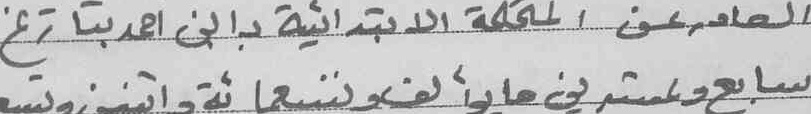 الصادر عن المحكمة الابتدائية بابن احمد بتاريخ
سابع وعشرين ماي ألف وتسعمائة واثنين وتسع